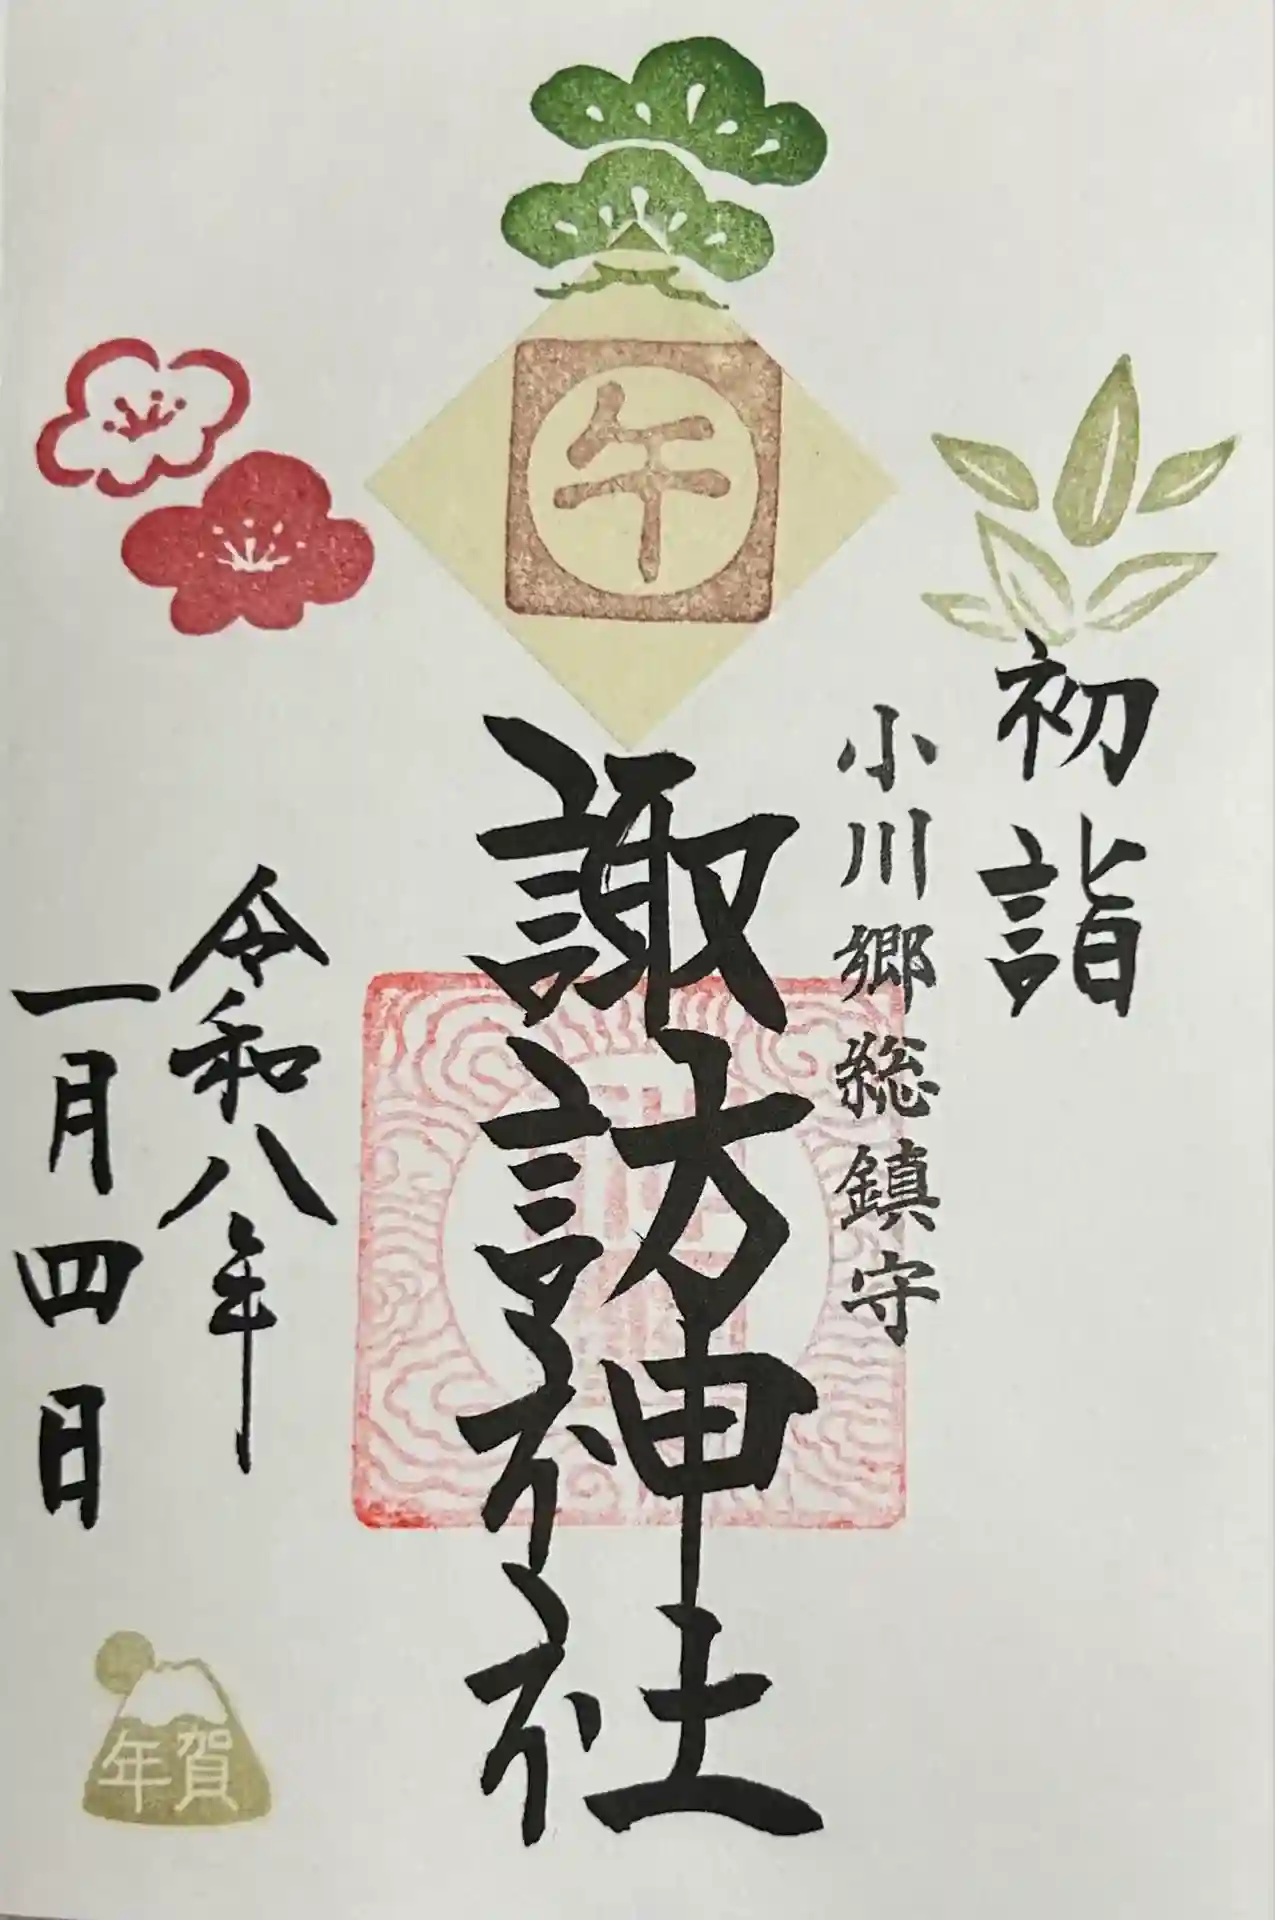 午
初詣
小川郷総鎮守
諏訪神社
令和八年
一月四日
年賀